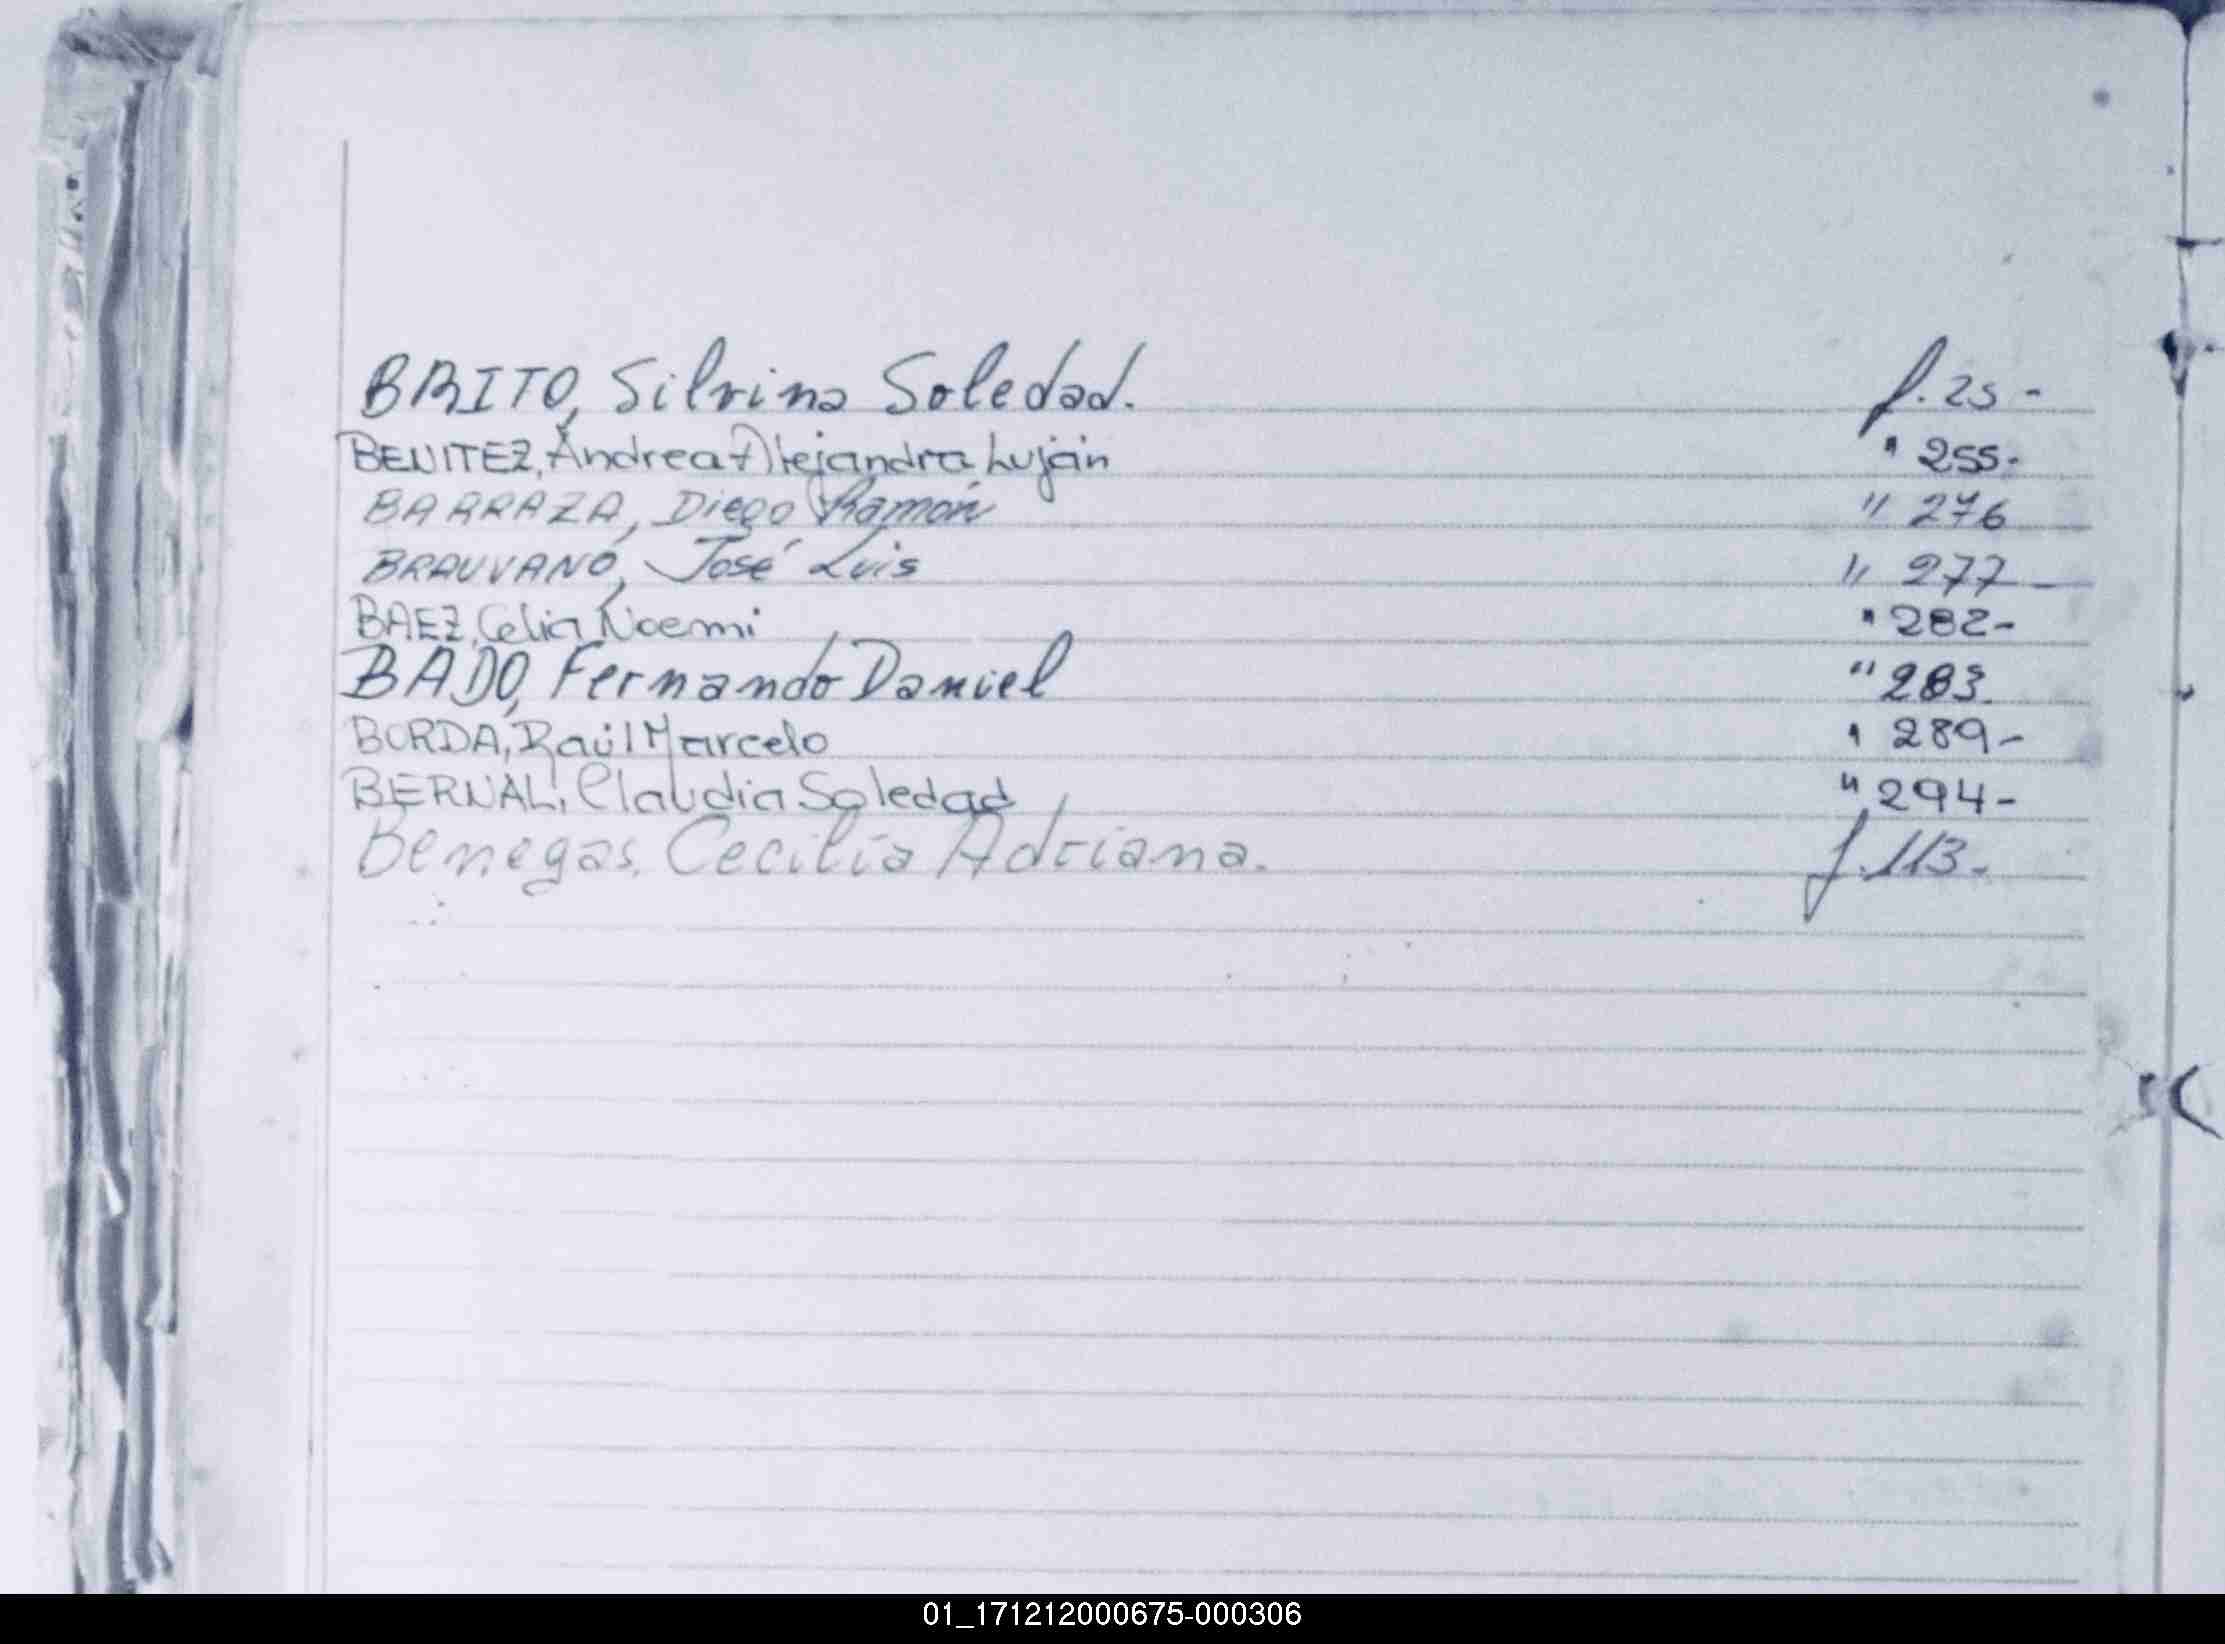 BRITO, Silvina Soledad. f. 25 -
BENITEZ, Andrea Alejandra Luján " 255-
BARRAZA, Diego Ramón " 276
BRAUVANO, José Luis " 277 -
BAEZ, Celia Noemi " 282-
BADO, Fernando Daniel " 283.
BORDA, Raúl Marcelo " 289-
BERNAL, Claudia Soledad " 294-
Benegas, Cecilia Adriana. f. 113.-
01_171212000675-000306